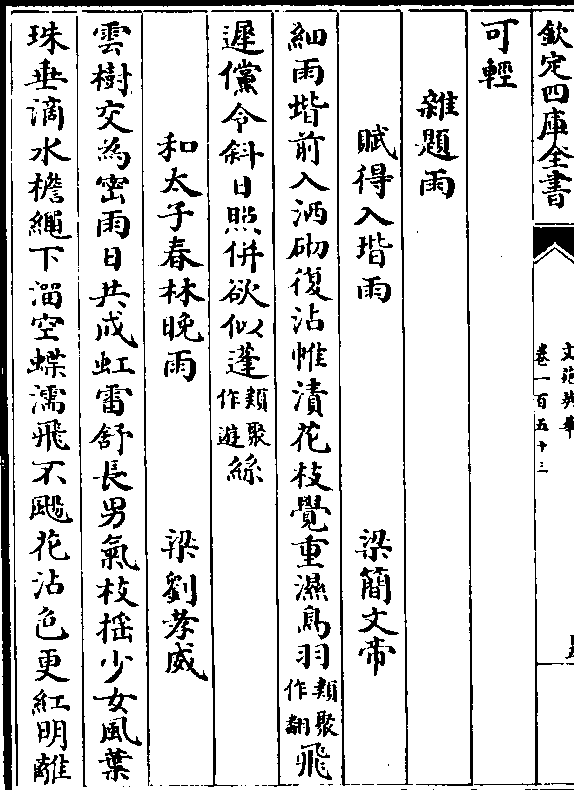 欽定四庫全書
文苑英華
卷一百五十三
可輕
雜題雨
賦得入堦雨 梁簡文帝
細雨堦前入洒砌復沾帷漬花枝覺重濕鳥羽類聚作翻飛
遲儻令斜日照併欲似蓬類聚作遊絲
和太子春林晚雨 梁劉孝威
雲樹交為密雨日共成虹雷舒長男氣枝搖少女風葉
珠垂滴水檐繩下溜空蝶濡飛不颺花沾色更紅明離